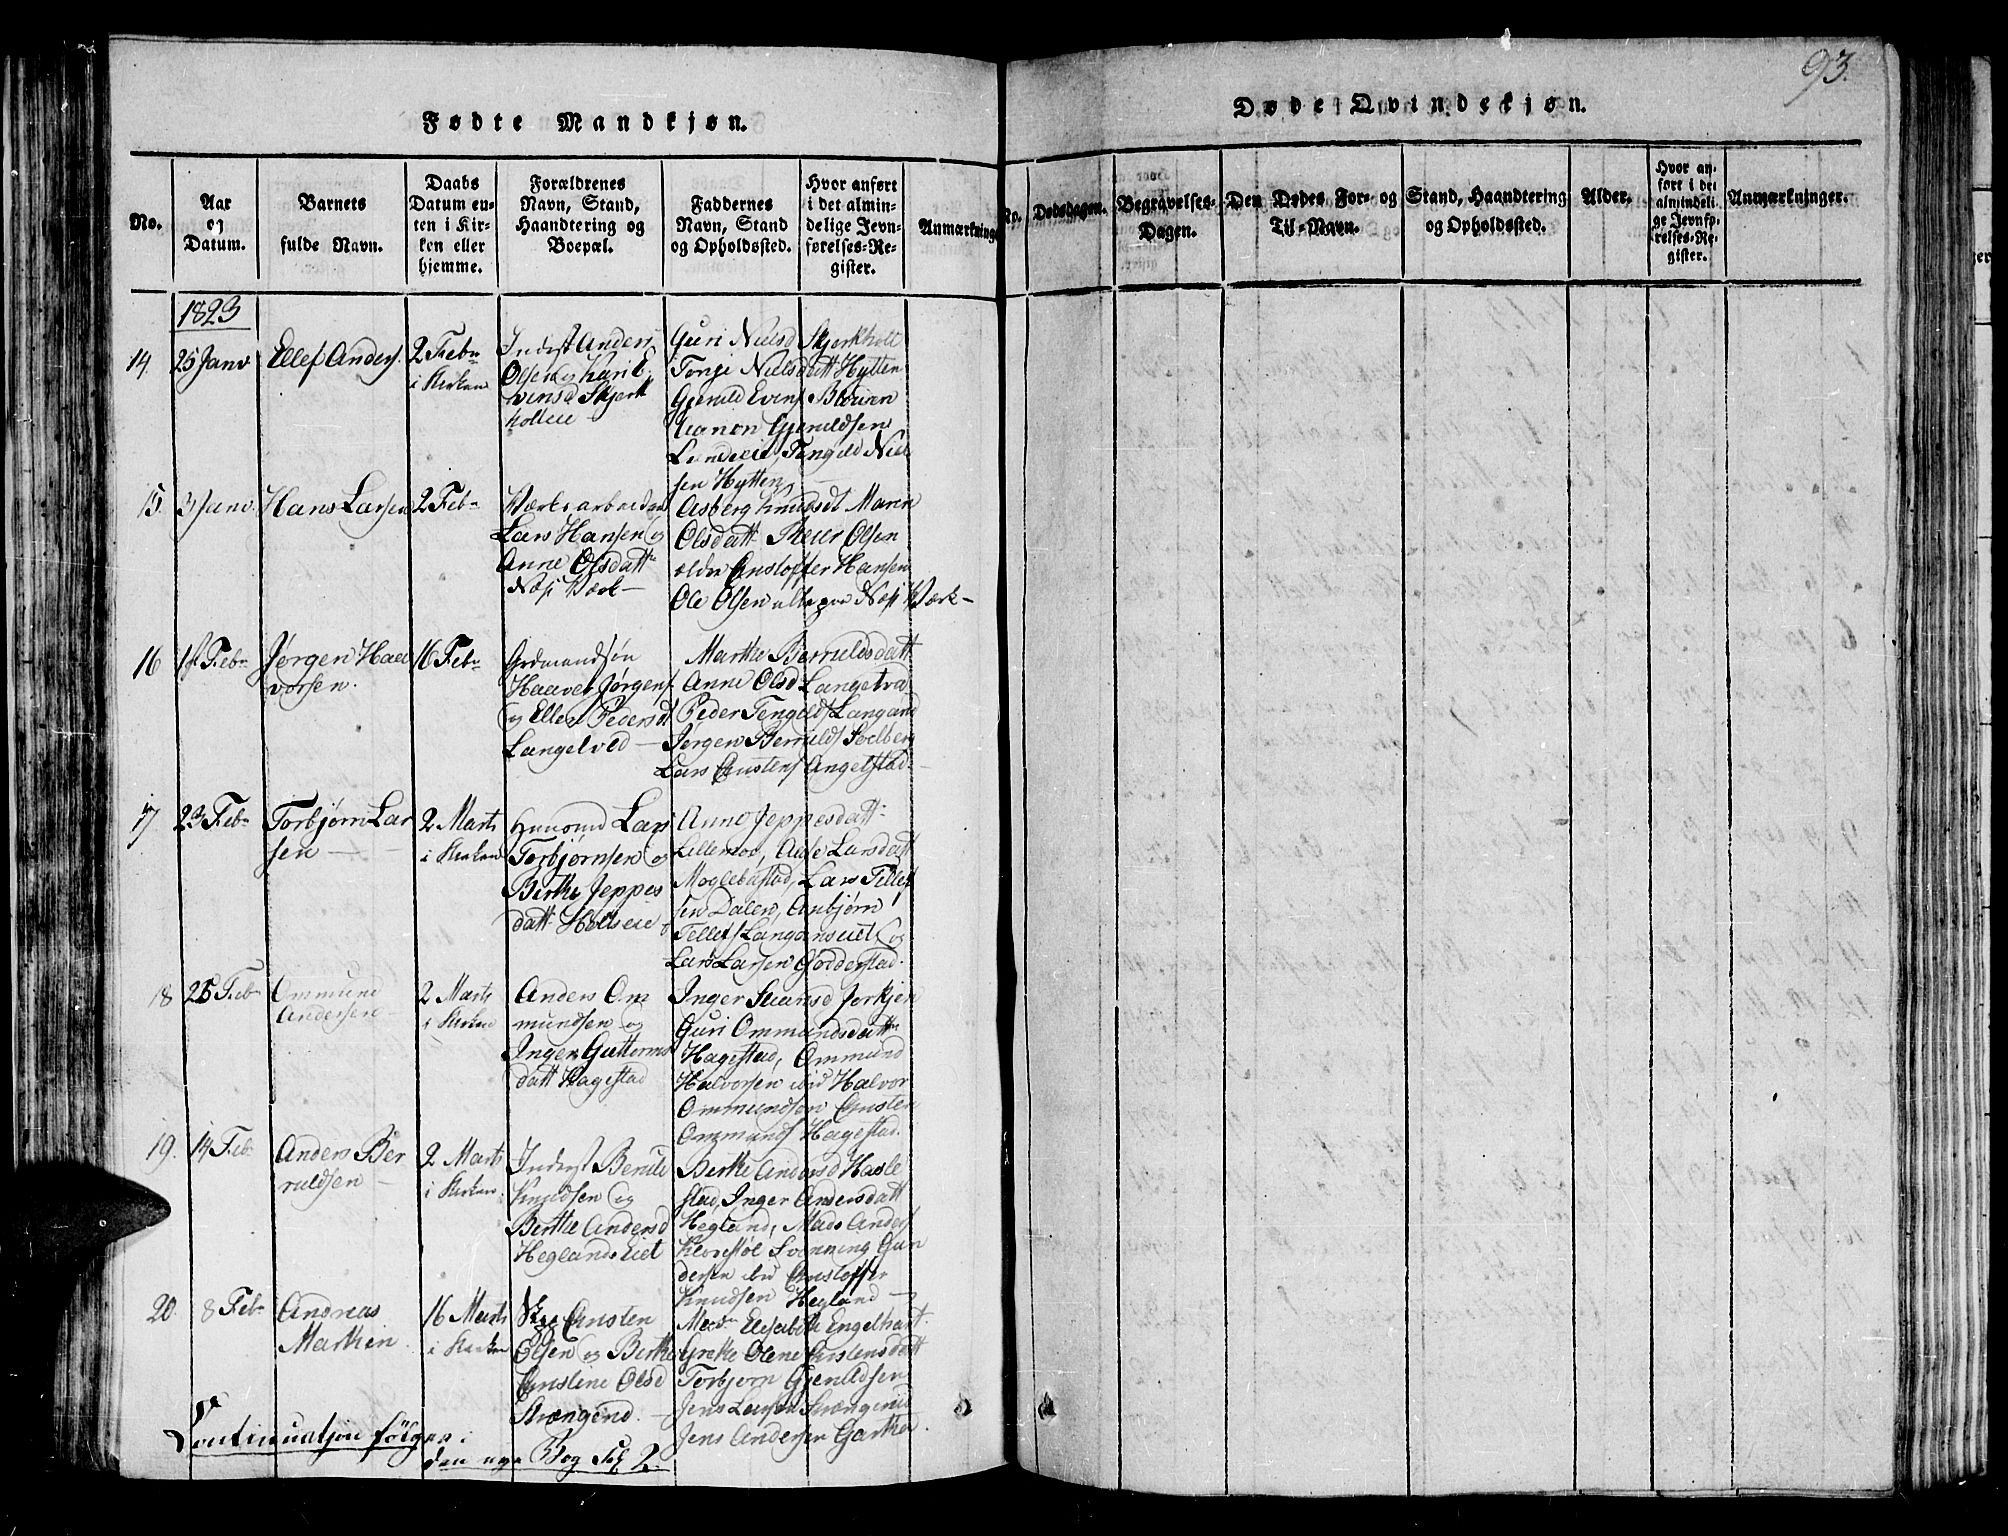 93.
Fødte Mandkjøn.
No.
Aar
og
Datum.
Barnets
fulde Navn.
Daabs
Datum en-
ten i Kir-
ken eller
hjemme.
Forældrenes
Navn, Stand,
Haandtering og
Boepæl.
Faddernes
Navn, Stand
og Opholdssted.
Hvor anført
i det almin-
delige Jevn-
førelses-Re-
gister.
Anmærkning
1823
14.
25 Janv
Ellef Anders.
2 Febr
i Kirken
Inderst Anders
Olsen og Kari E
vensd Skjerk
holteie
Guri Nielsd Skjerkholt
Tonje Nielsdatt Hytten
Gjeruld Evens
Gjeruldsen
Niel
sen Hytten
15.
3 Janv.
Hans Larsen
2 Febr
Værksarbeider
Lars Hansen og
Anne Olsdattr
Næs Værk
Asberg Knudsdt Maren
Olsdatt Peter Olsen
ældre Christoffer Hansen
Ole Olsen alle paa Næs Værk
16
1st Febr
Jørgen Haa
vorsen.
16 Febr
Haavor Jørgens
og Ellen Pedersd
Langelved
Marthe Berruldsdatt
Anne Olsd
Peder Tengelds Langand
Jørgen Berrulds Solberg
Lars Christens Angelstad
17
23 Febr
Torbjørn Lar
sen
2 Marts
i Kirken
Huusmd Lars
Torbjørnsen og
Berthe Jeppes
datt Holteie
Anne Jeppesdatt
Lillemoe, Aase Larsdatt
Moglebastad, Lars Tellef
sen Dalen, Anbjørn
Tellefs Langanseiet og
Lars Larsen Godderstad.
18
25 Febr
Ommund
Andersen
2 Marts
i Kirken
Anders Om
mundsen og
Inger Guttorms
datt Hagestad
Guri Ommundsdattr
Hagestad, Ommund
Halvorsen ibid Halvor
Ommundsen Christen
Ommunds Hagestad.
19.
14 Febr
Anders Ber
ruldsen
2 Marts
i Kirken
Inderst Beruld
Knudsen og
Berthe Andersd
Heglands Eiet
Berthe Andersd Hasle
stad, Inger Andersdatt
Hegland, Mads Anders
Klovestøl Svenning Gun
dersen ibid Christoffer
Knudsen Hegland
20.
8 Febr
Andreas
Marthin
16 Marts
i Kirken
Christen
Olsen og Berthe
Christine Olsd
Strængerud.
Mad. Elisabeth Engelhart.
Grethe Olene Christensdatt
Torbjørn Gjeruldsen
Jens Larsen Strængerud
Jens Andersen Gartha.
Continuatjon følger i
den nye Bog Fol 2.
Døde Qvindekjøn.
No.
Dødsdagen.
Begravelses-
Dagen.
Den Dødes For- og
Til-Navn.
Stand, Haandtering
og Opholdssted.
Alder.
Hvor an-
ført i det
almindeli-
ge Jevnfø-
relses-Re-
gister.
Anmærkninger.